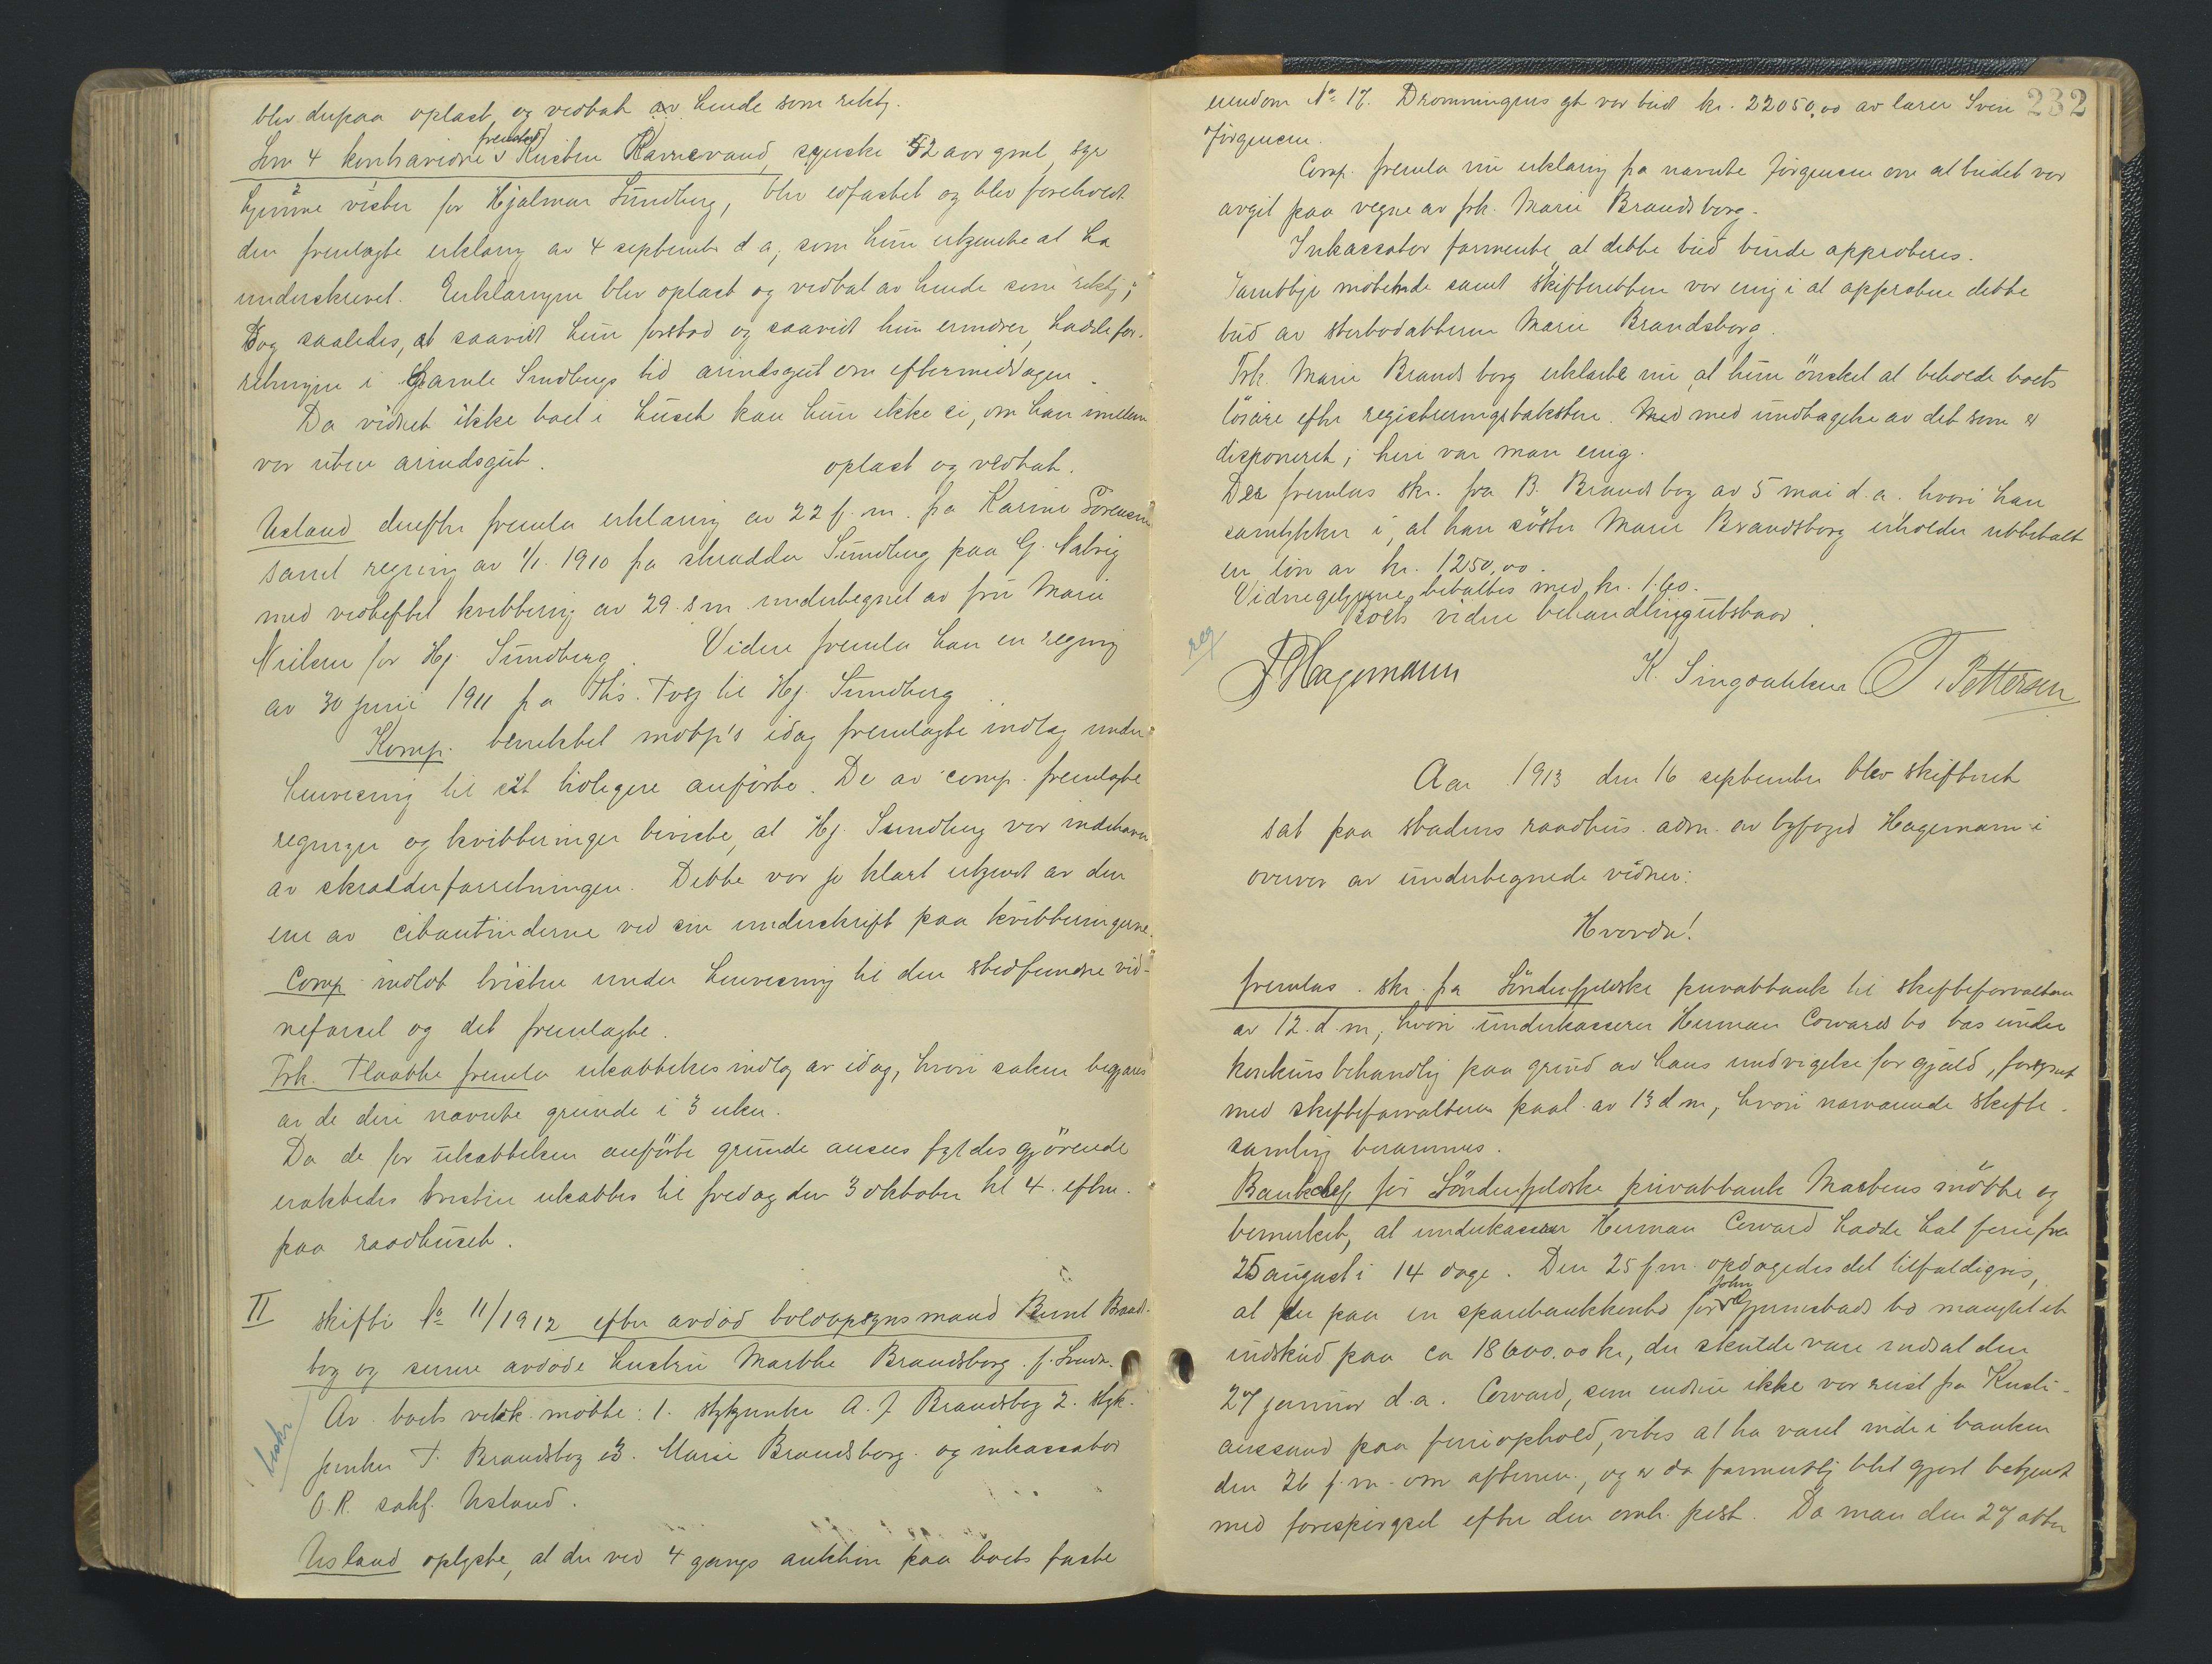 blev derpaa oplæst og vedtat av hende som riktig.
Som 4 kontravidne fremstod Kirstine Ravnevand, syerske 52 aar gml, syr
hjemme vester for Hjalmar Sundberg, blev edfæstet og blev foreholdt
den fremlagte erklæring av 4 september d a, som hun erkjendte at ha
underskrevet. Erklæringen blev oplæst og vedtat av hende som riktig;
Dog saaledes, at saavidt hun forstod og saavidt hun erindrer, hadde for-
retningen i Gamle Sundbergs tid ærindsgut om eftermiddagen.
Da vidnet ikke boet i huset kan hun ikke si, om han imellem
var uten ærindsgut. oplæst og vedtat.
Usland derefter fremla erklæring av 22 f. m. fra Karine Sørensen
samt regning av 1/1. 1910 fra skrædder Sundberg paa G. Nalvig
med vedheftet kvittering av 29. s m. undertegnet av fru Marie
Nielsen for Hj. Sundberg. Videre fremla han en regning
av 30 juni 1911 fra Ths. Tvey til Hj. Sundberg
Komp. benektet motp's idag fremlagte indlæg under
henvisning til sit tidligere anførte. De av comp. fremlagte
regninger og kvitteringer beviste, at Hj. Sundberg var indehaver
av skrædderforretningen. Dette var jo klart erkjendt av den
ene av citantinderne ved sin underskrift paa kvitteringerne.
Comp indlot tvisten under henvisning til den stedfundne vid-
neførsel og det fremlagte.
Frk. Flaatte fremla utsættelses indlæg av idag, hvori saken begjæres
av de deri nævnte grunde i 3 uker.
Da de for utsættelsen anførte grunde ansees fyldesgjørende
eraktedes tvisten utsættes til fredag den 3 oktober kl 4. efterm.
paa raadhuset.
II skifte No 11/1912 efter avdød toldopsynsmand Bernt Brands-
borg og senere avdøde hustru Marthe Brandsborg f. Svends.
Av boets vedk. møtte: 1. styrm. A. J Brandsborg 2. Myk.
T. Brandsborg 3. Marie Brandsborg. og inkassator
O.R. sakf. Usland.
Usland oplyste, at der ved 4 gangs auktion paa boets faste
232
eiendom No 17. Dronningens gt var bud kr. 22050,00 av lærer Svein
Jørgensen.
Comp. fremla nu erklæring fra nævnte Jørgensen om at budet var
avgit paa vegne av frk. Marie Brandsborg.
Inkassator formente at dette bud burde approberes.
Samtlige møtende samt skifteretten var enig i at approbere dette
bud av sterbodatteren Marie Brandsborg.
Frk. Marie Brandsborg erklærte nu, at hun ønsket at beholde boets
løsøre efter registreringstaksten. Med med undtagelse av det som er
disponeret; heri var man enig.
Der fremlas skr. fra B. Brandsborg av 5 mai d. a. hvori han
samtykker i, at han søster Marie Brandsborg erholder utbetalt
en løn av kr. 1250,00.
Vidnegebyrene betaltes med kr. 1.60.
Boets videre behandling utstaar.
reg
F Hagemann K. Singsakker T. Pettersen
Aar 1913 den 16 september blev skifteret
sat paa stadens raadhus. adm. av byfoged Hagemann i
overvær av undertegnede vidner:
Hvorda!
fremlas. skr. fra Søndenfjeldske privatbank til skifteforvalteren
av 12. d. m, hvori underkasserer Herman Corwards bo tas under
konkursbehandling paa grund av hans undvigelse for gjæld, forsynt
med skifteforvalterens paat. av 13 d m, hvori nærværende skifte-
samling berammes.
Bankchef for Søndenfjeldske privatbank Mastens møtte og
bemerket, at underkasserer Herman Corward hadde hat ferie fra
25 august i 14 dage. Den 25 f.m. opdagedes det tilfældigvis,
at der paa en sparebankkonto for John Gjennestads bo manglet et
indskud paa ca 18600.00 kr, der skulde være indsat den
27 januar d.a. Corward, som endnu ikke var reist fra Kristi-
anssand paa ferieophold, vites at ha været inde i banken
den 26 f. m. om aftenen, og er da formentlig blit gjort bekjendt
med forespørgsel efter den omh. post. Da man den 27 atter